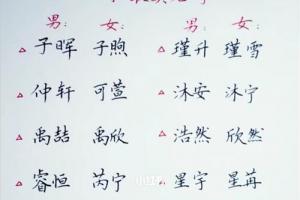 男: 女: 男: 女:
子晖 子煦 瑾升 瑾雪
仲轩 可萱 沐安 沐宁
禹喆 禹欣 浩然 欣然
睿恒 芮宁 星宇 星苒
小红书